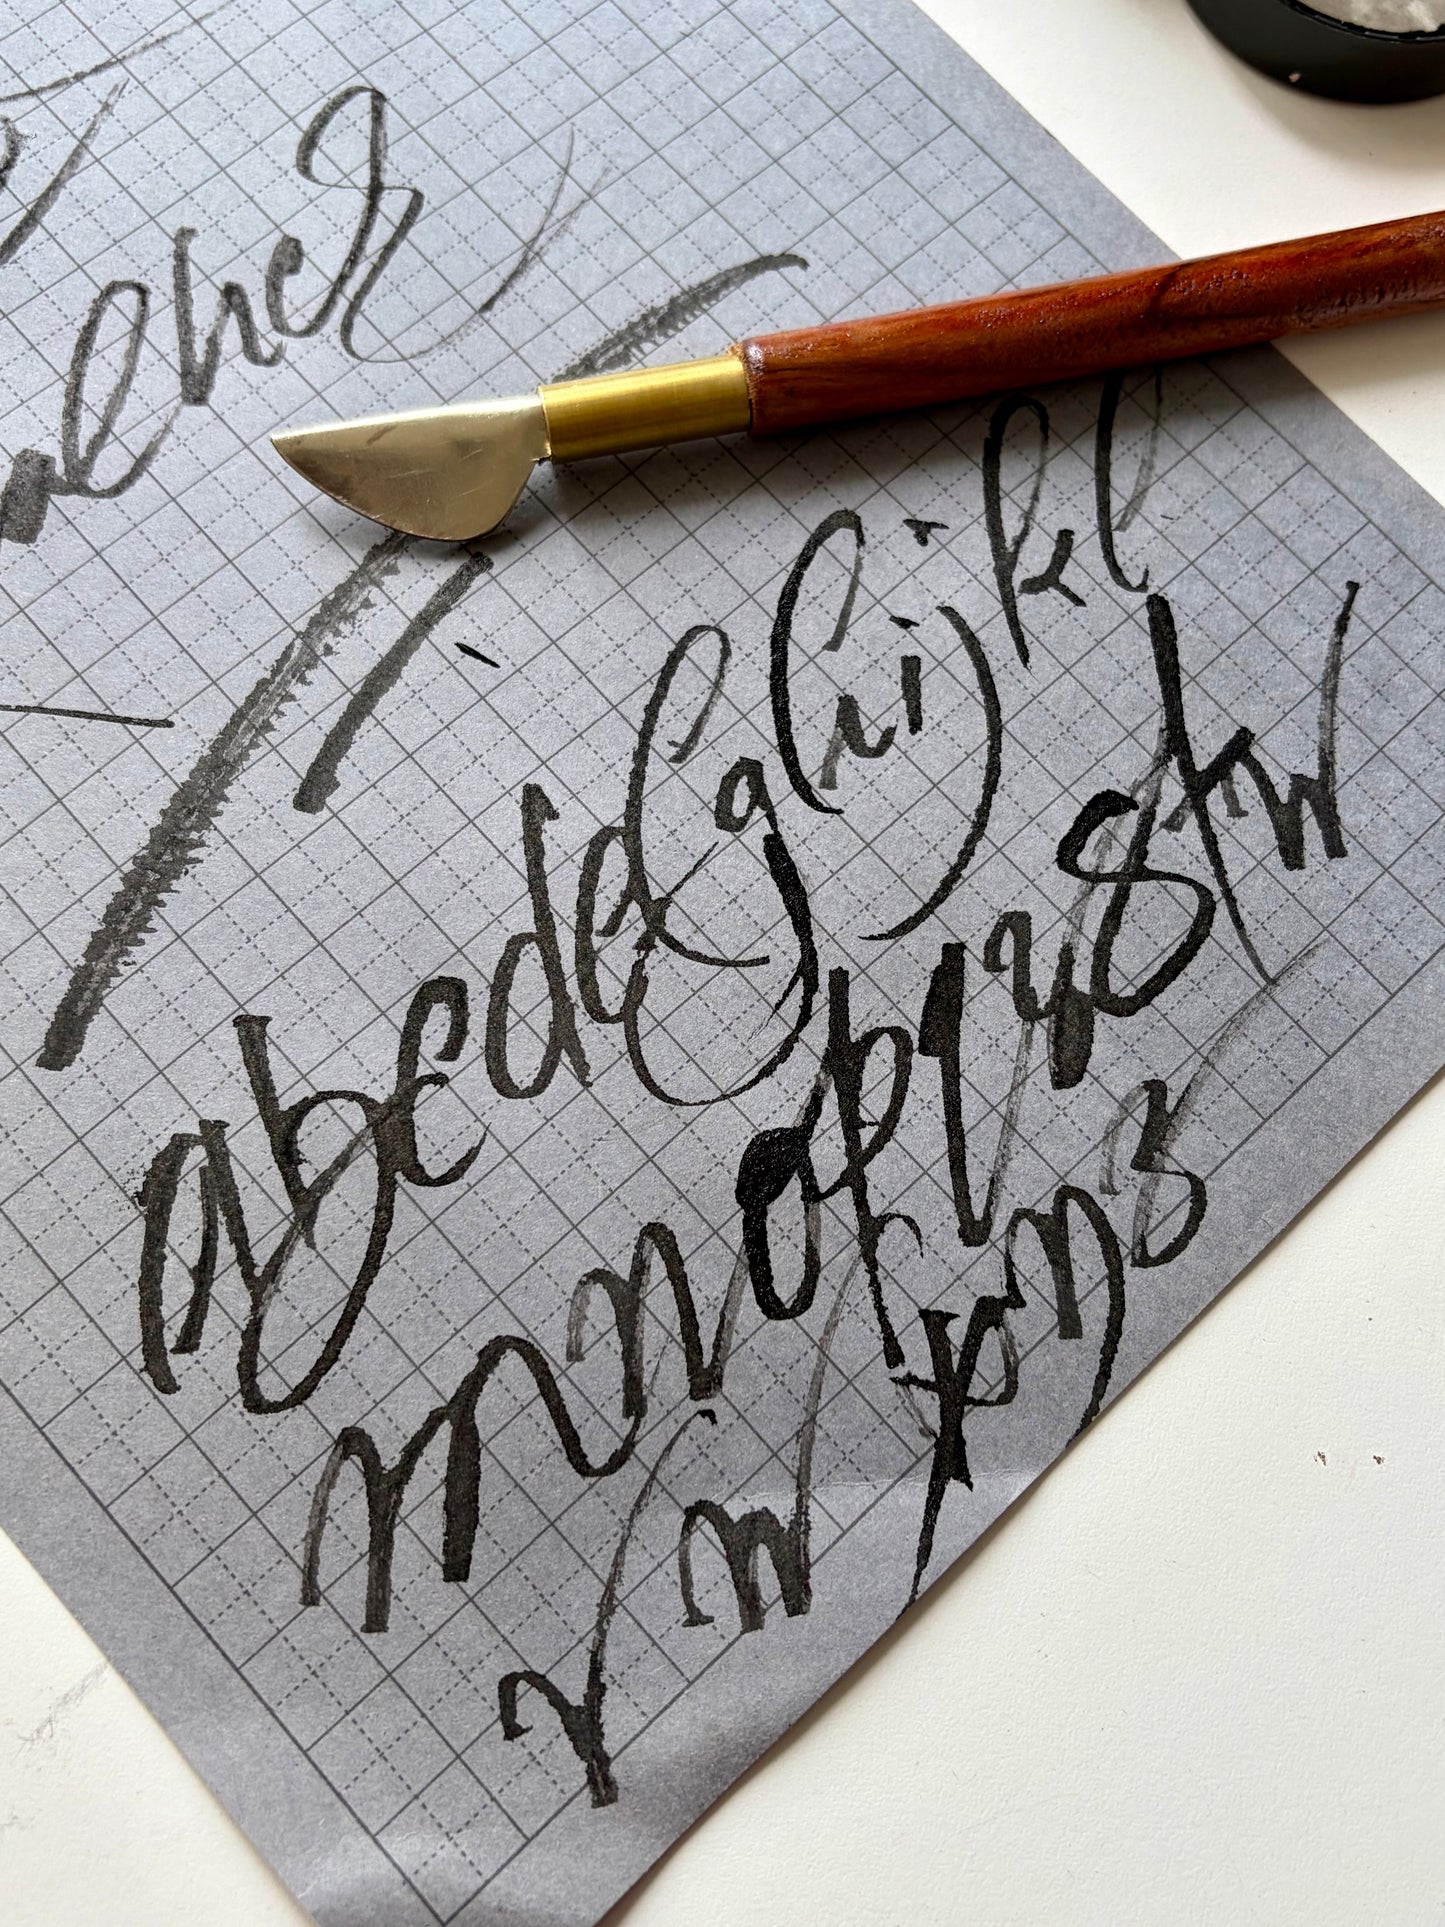 abcdefghijkl
mnopqrstu
vwxyz